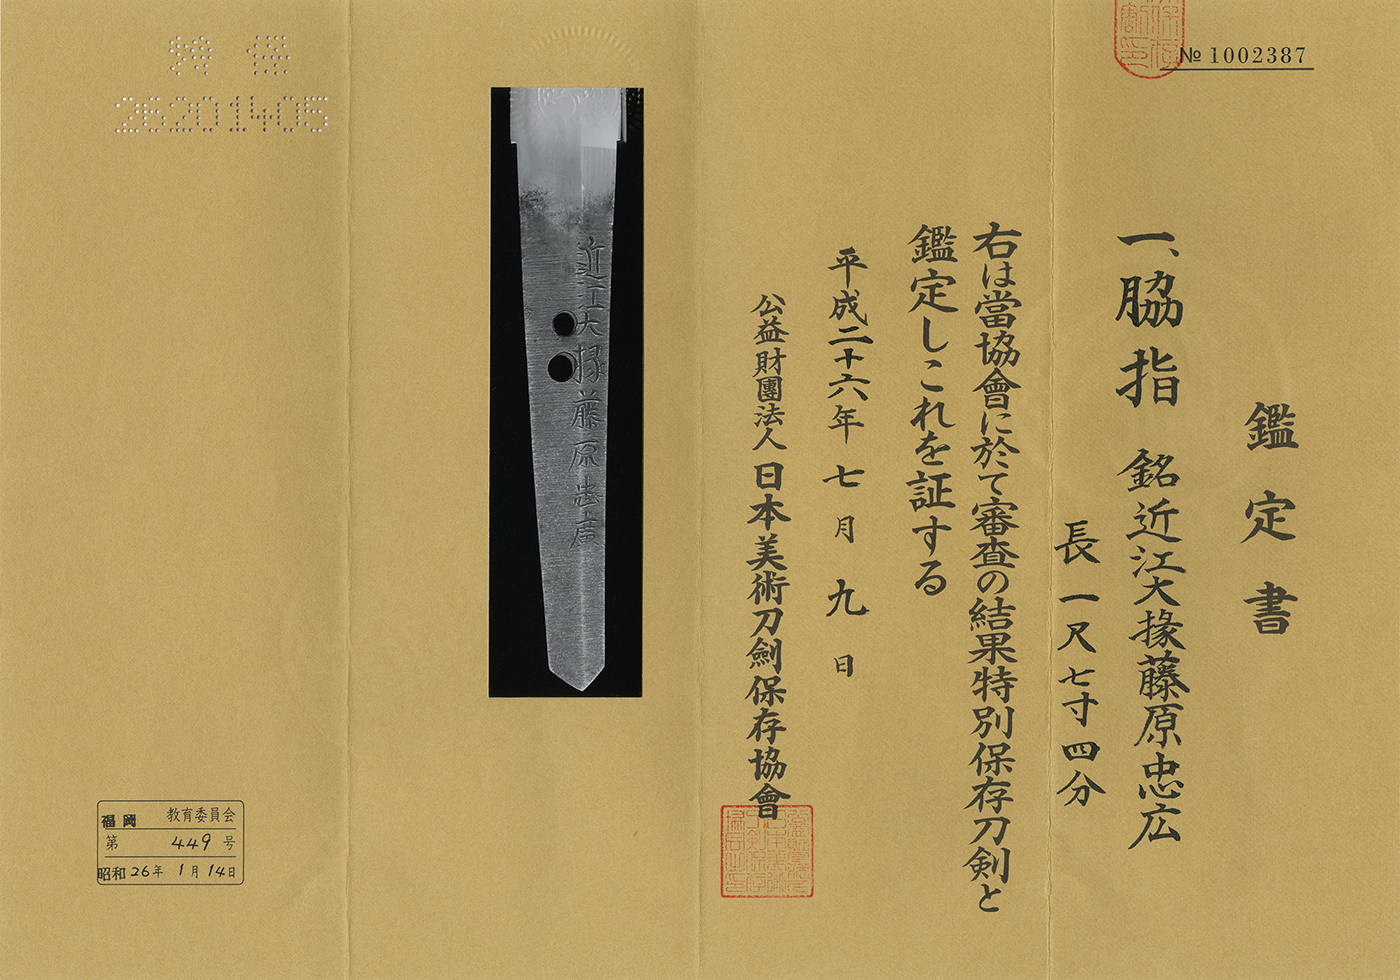 № 1002387
鑑定書
一、脇指 銘近江大掾藤原忠広
長一尺七寸四分
右は當協會に於て審査の結果特別保存刀剣と
鑑定しこれを証する
平成二十六年七月九日
公益財團法人日本美術刀劍保存協會
近江大掾藤原忠廣
26201405
福岡 教育委員会
第 449 号
昭和26年 1月 14日